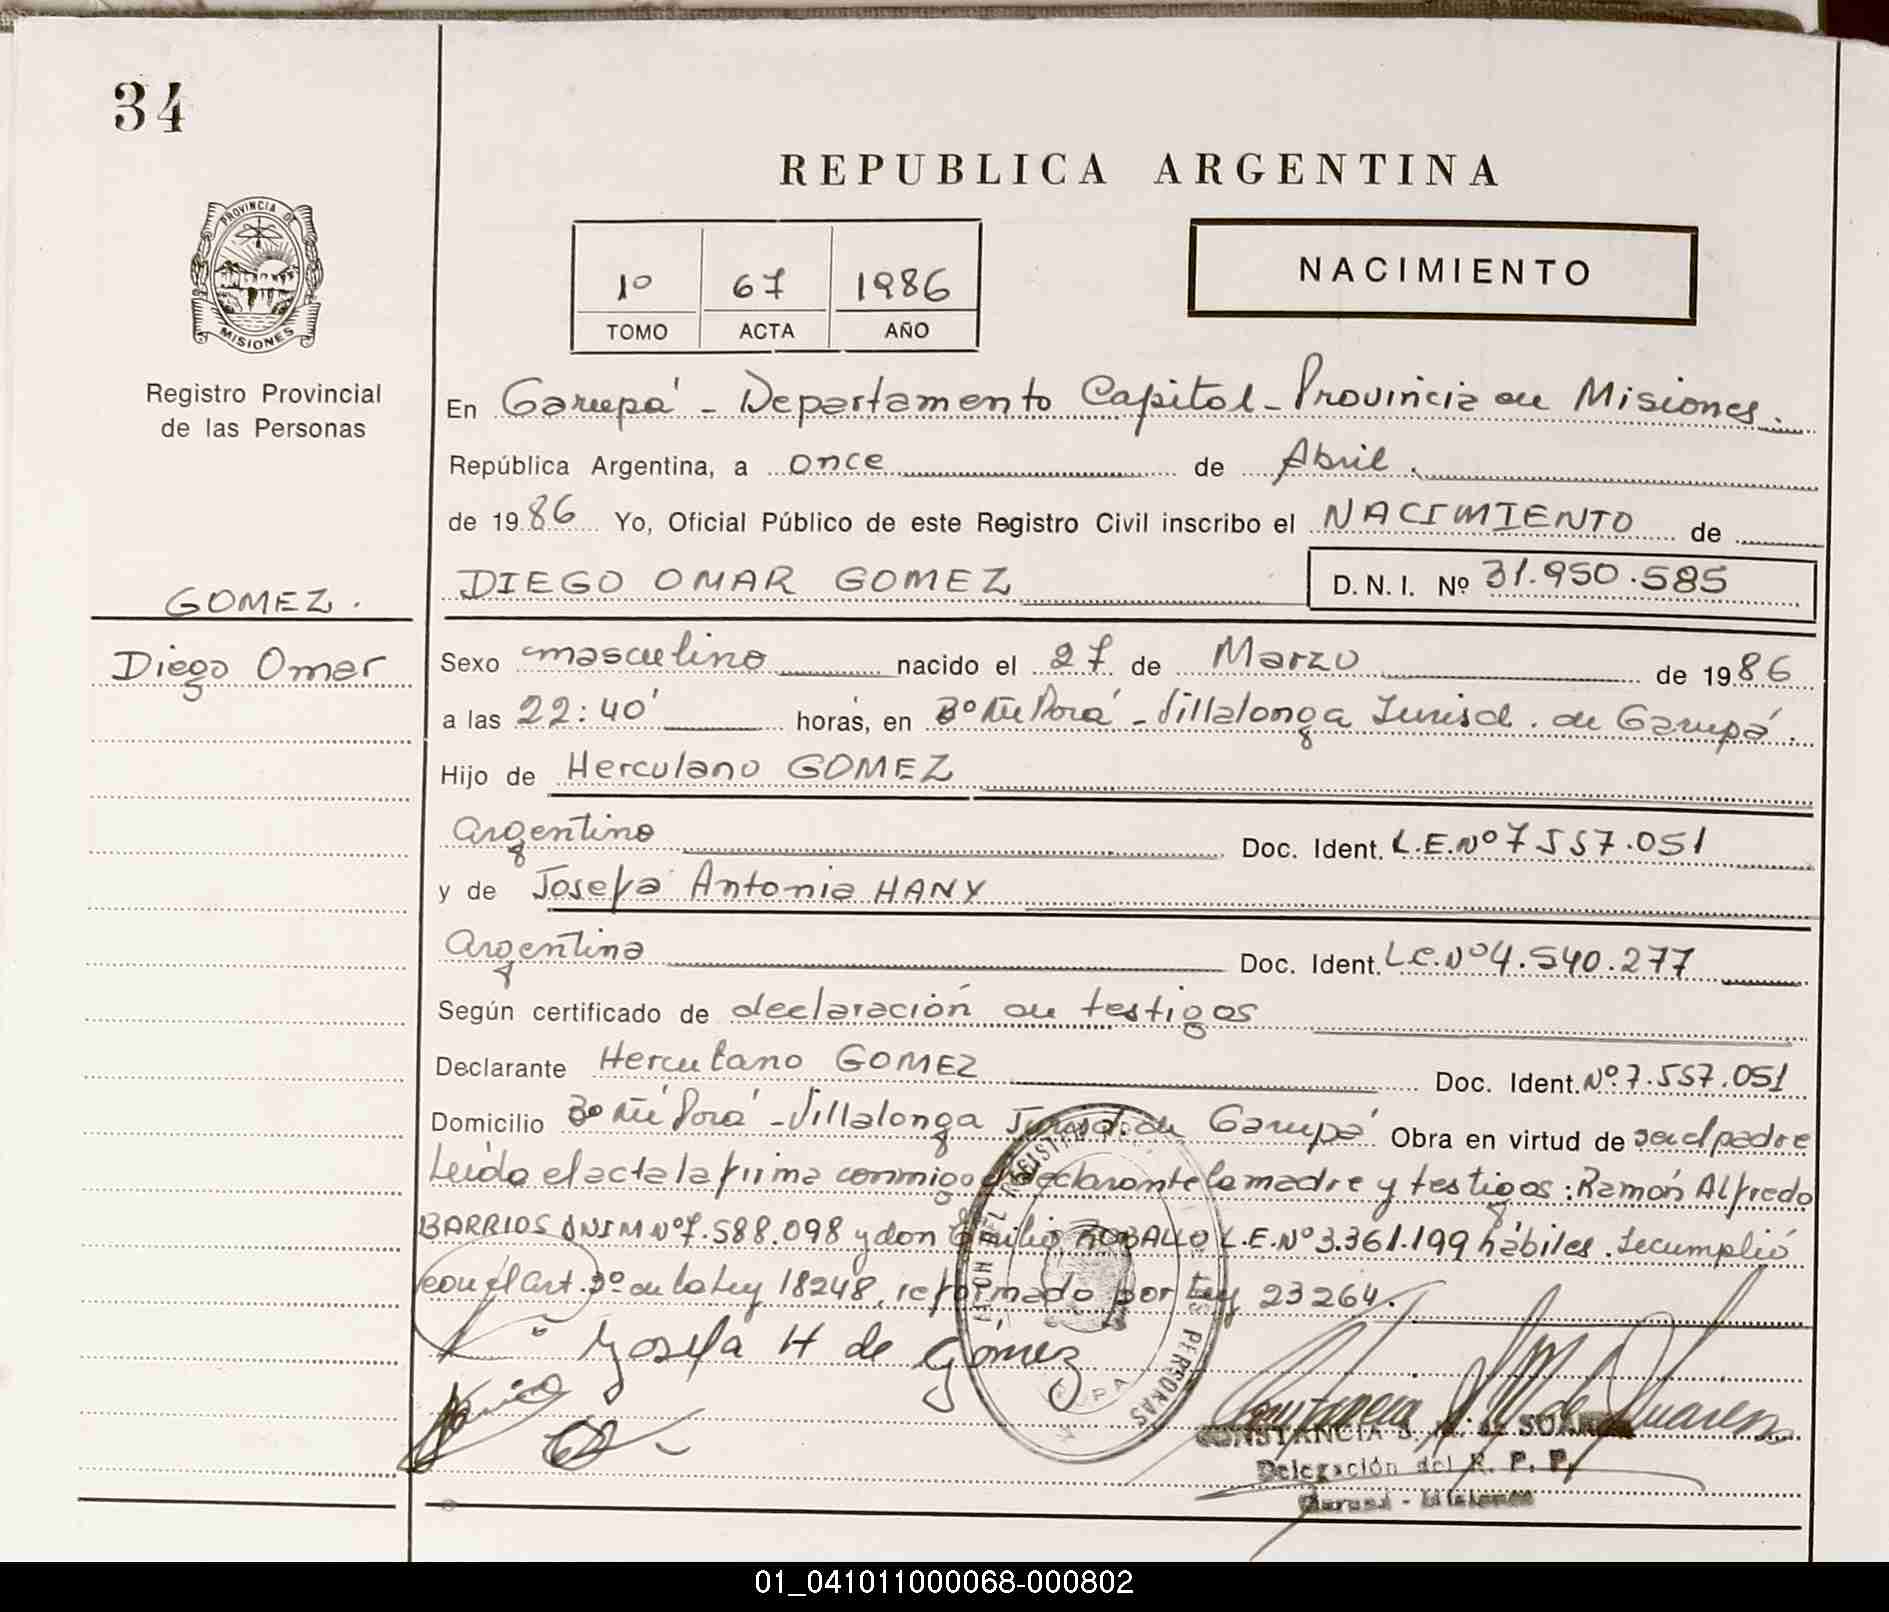 34
REPUBLICA ARGENTINA
PROVINCIA DE
MISIONES
Registro Provincial
de las Personas
1º 67 1986
TOMO ACTA AÑO
NACIMIENTO
En Garupá - Departamento Capital - Provincia de Misiones.
República Argentina, a once de Abril.
de 1986 Yo, Oficial Público de este Registro Civil inscribo el NACIMIENTO de
DIEGO OMAR GOMEZ D.N.I. Nº 31.950.585
GOMEZ.
Diego Omar
Sexo masculino nacido el 27 de Marzo de 1986
a las 22:40' horas, en Bº Ñu Porá - Villalonga Jurisd. de Garupá.
Hijo de Herculano GOMEZ
argentino Doc. Ident. L.E. Nº 7.557.051
y de Josefa Antonia HANY
Argentina Doc. Ident. L.C. Nº 4.540.277
Según certificado de declaración de testigos
Declarante Herculano GOMEZ Doc. Ident. Nº 7.557.051
Domicilio Bº Ñu Porá - Villalonga Jurisd. de Garupá Obra en virtud de ser el padre
Leída el acta la firma conmigo el declarante la madre y testigos: Ramón Alfredo
BARRIOS DNI M Nº 7.588.098 y don ROBALLO L.E. Nº 3.361.199 hábiles. Se cumplió
con el art. 2º de la Ley 18248, reformado por Ley 23264.
Josefa H de Gómez
CONSTANCIA S. de SUAREZ
Delegación del R. P. P.
Garupá - Misiones
01_041011000068-000802